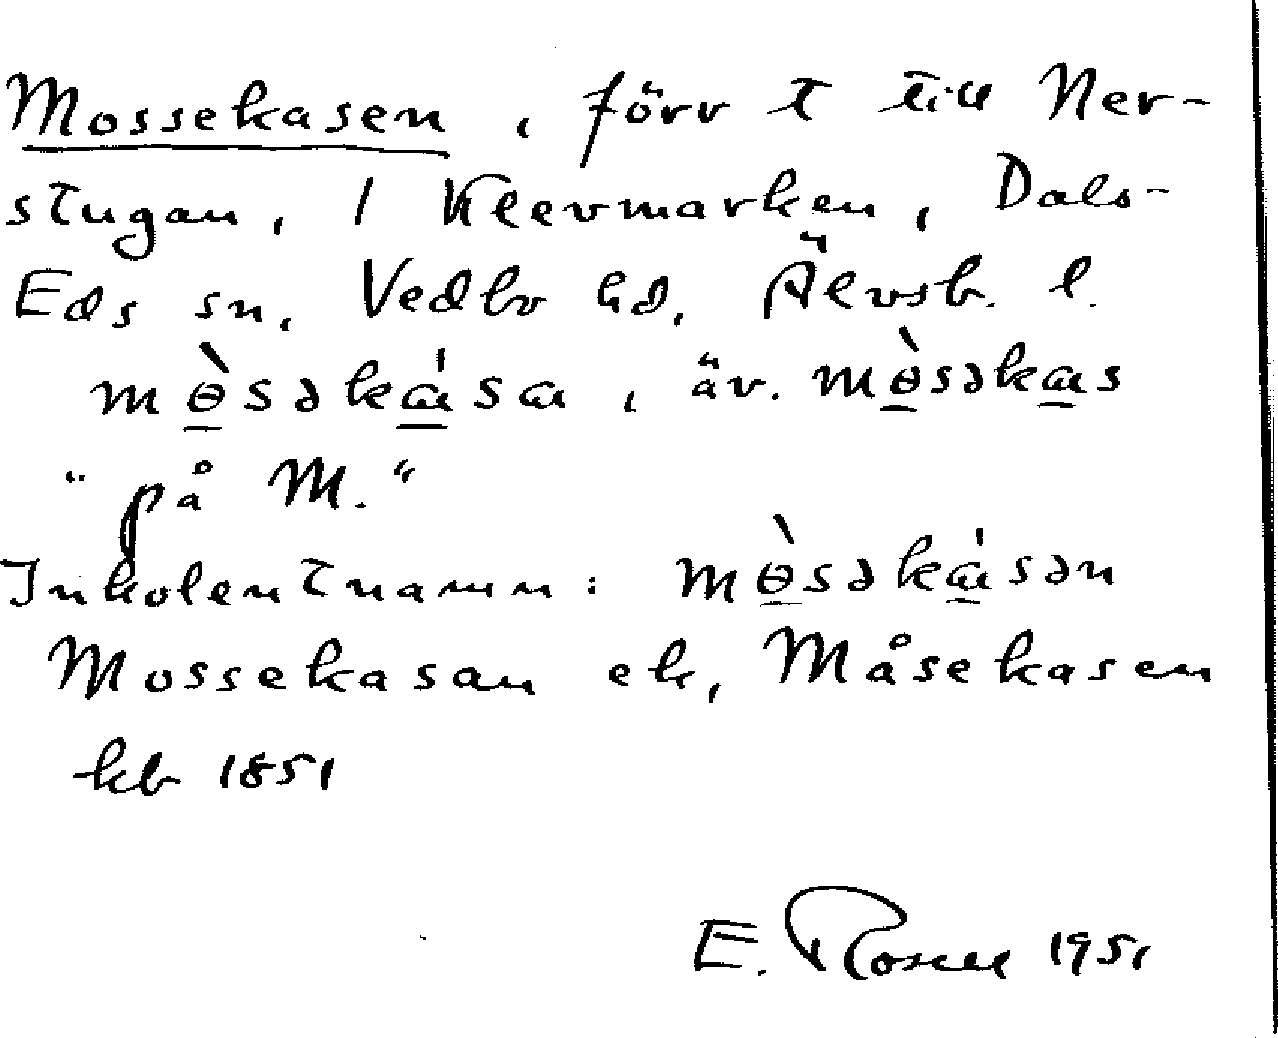 Mossekasen, förr t till Ner-
stugan, 1 Klevmarken, Dals-
Eds sn, Vedbo hd, Älvsb. l.
mɵ̀səkɑ́sa, äv. mɵ̀səkɑs
"på M."
Inkolentnamn: mɵ̀səkɑ́sən
Mossekasan ek, Måsekasen
kb 1851
E. Rosell 1951